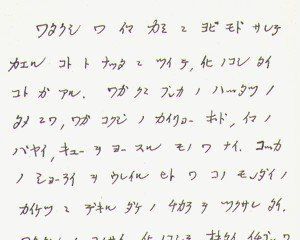 ワタクシ ワ イマ カミ ニ ヨビ モド サレテ
カエル コト ト ナッタ ニ ツイテ, ノコシ タイ
コト ガ アル. ワガ クニ ブンカ ノ ハッタツ ノ
タメ ニワ, ワガ コクジ ノ カイリョー ホド, イマ ノ
バヤイ, キュー ヲ ヨースル モノ ワ ナイ. コッカ
ノ ショーライ ヲ ウレイル ヒト ワ コノ モンダイ ノ
カイケツ ニ デキル ダケ ノ チカラ ヲ ツクサレ タイ.